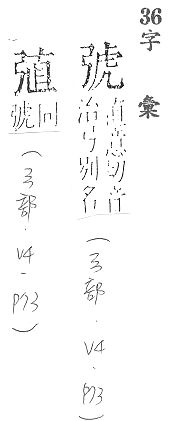 36字彙
號
直意切音
治弓別名
(弓部·V4·P73)
同
號
(弓部·V4·P73)